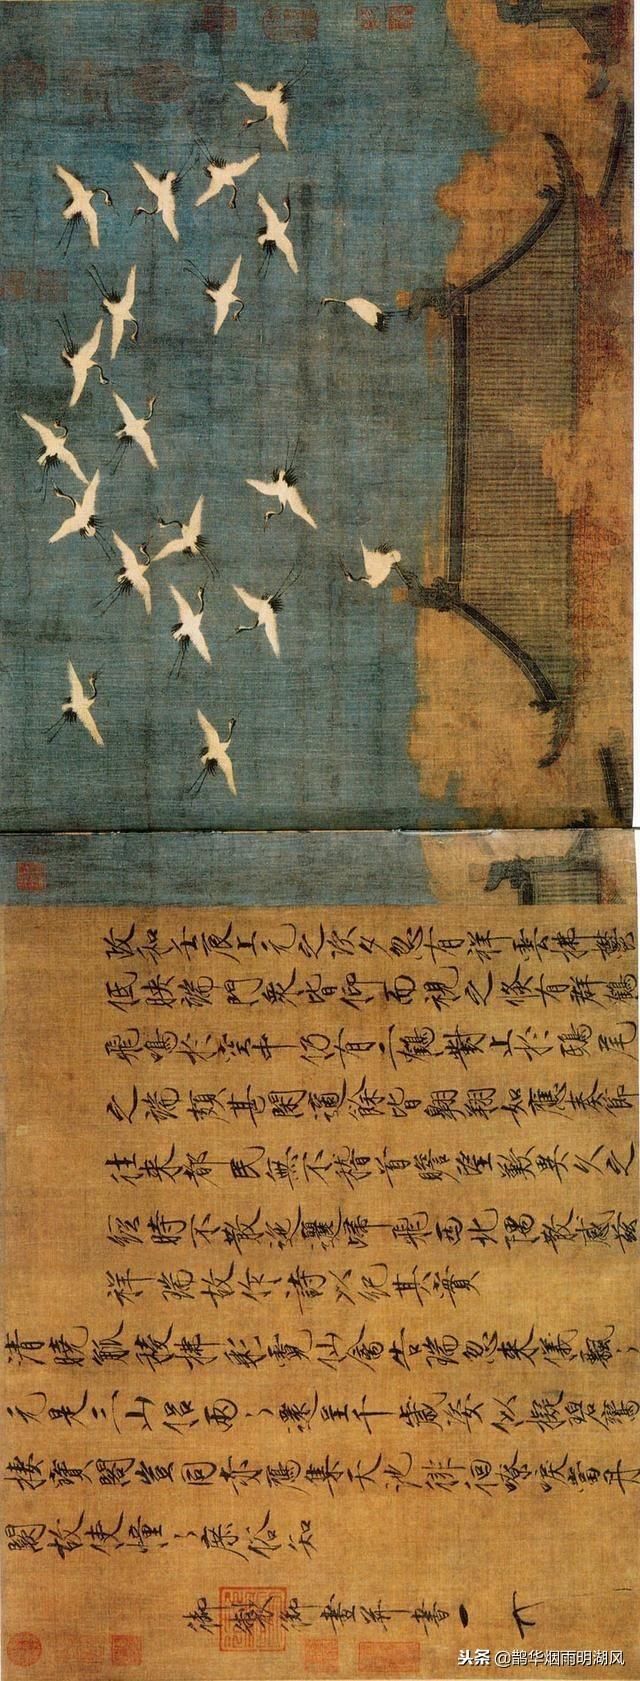 政和壬辰上元之次夕忽有祥雲拂鬱
低映端門衆皆仰而視之倏有群鶴
飛鳴於空中仍有二鶴對止於鴟尾
之端頗甚閑適餘皆翱翔如應奏節
往來都民無不稽首瞻望歎異久之
經時不散迤邐歸飛西北隅散感茲
祥瑞故作詩以紀其實
清曉觚稜拂彩霓仙禽告瑞忽來儀飄〻
元是三山侶兩〻還呈千歲姿似擬碧鸞
棲寶閣豈同赤鴈集天池徘徊嘹唳當丹
闕故使憧〻庶俗知
御製御畫并書
头条 @鹊华烟雨明湖风